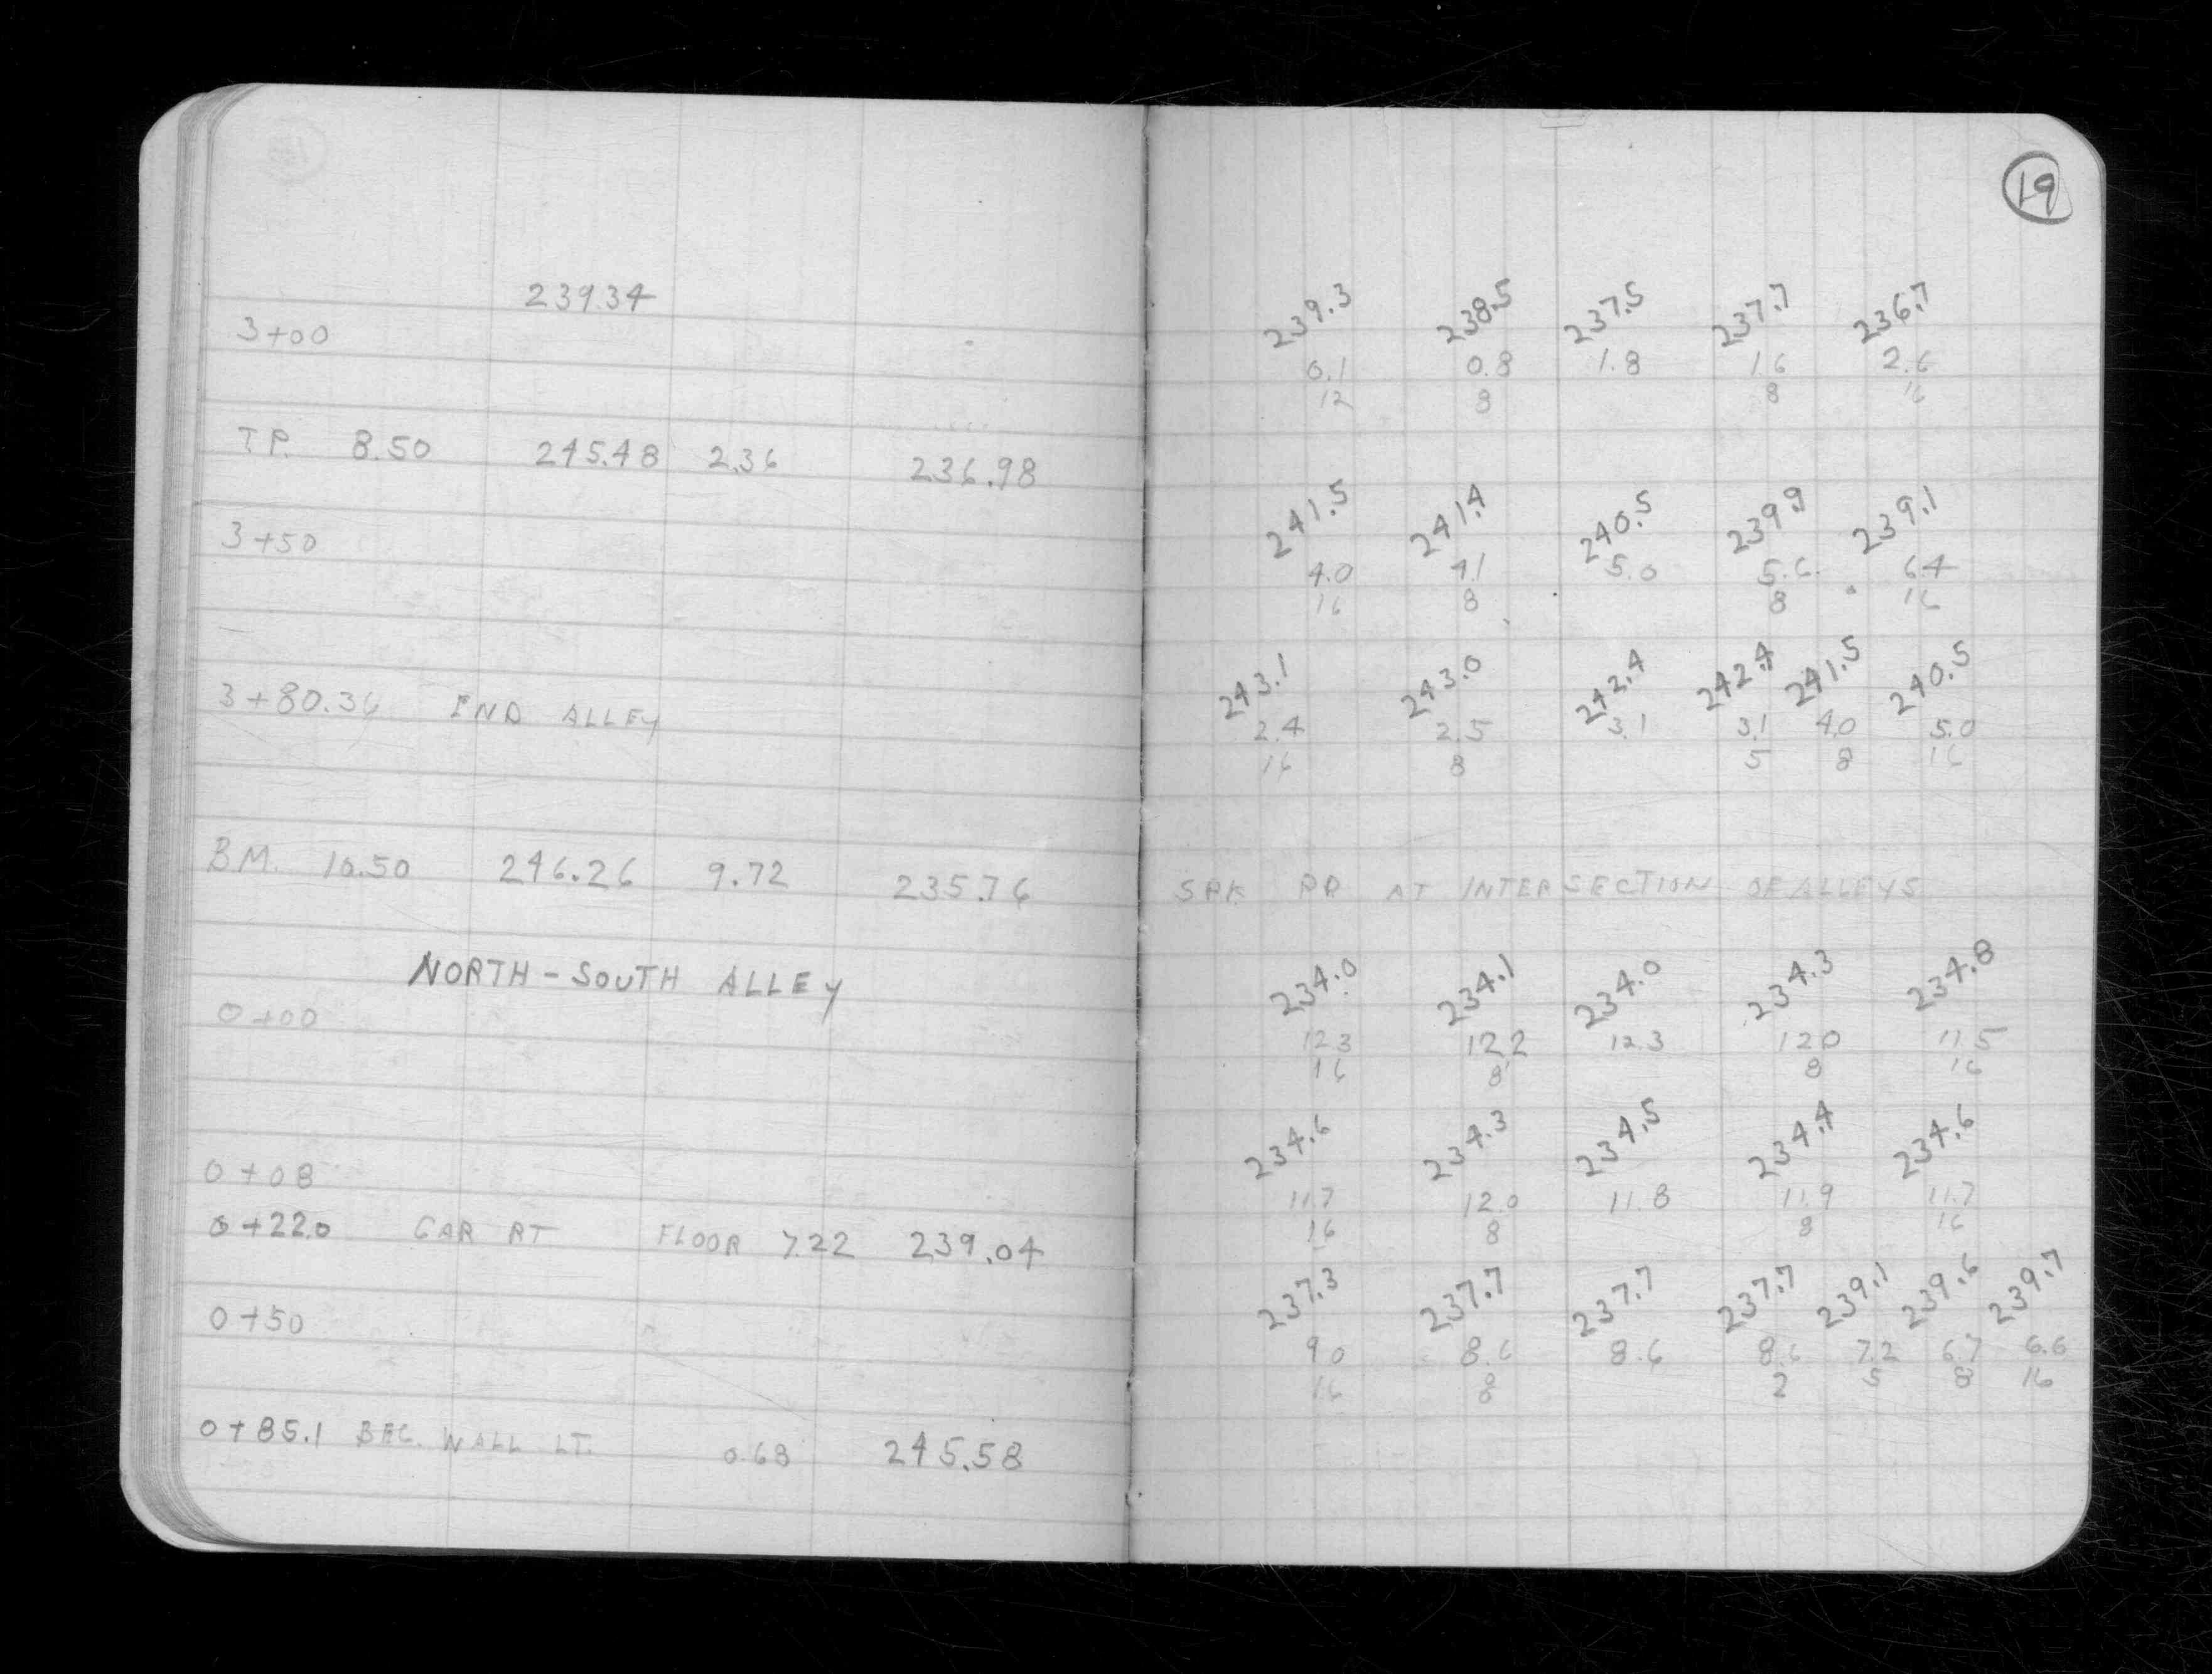 19
239.34
3+00
239.3 238.5 237.5 237.7 236.7
0.1 0.8 1.8 1.6 2.6
12 8 8 16
T.P. 8.50 245.48 2.36 236.98
3+50
241.5 241.4 240.5 239.9 239.1
4.0 4.1 5.0 5.6 6.4
16 8 8 16
3+80.36 END ALLEY
243.1 243.0 242.4 242.4 241.5 240.5
2.4 2.5 3.1 3.1 4.0 5.0
16 8 5 8 16
B.M. 10.50 246.26 9.72 235.76 SPK PP AT INTERSECTION OF ALLEYS
NORTH-SOUTH ALLEY
0+00
234.0 234.1 234.0 234.3 234.8
12.3 12.2 12.3 12.0 11.5
16 8 8 16
0+08
234.6 234.3 234.5 234.4 234.6
11.7 12.0 11.8 11.9 11.7
16 8 8 16
0+22.0 GAR RT FLOOR 7.22 239.04
0+50
237.3 237.7 237.7 237.7 239.1 239.6 239.7
9.0 8.6 8.6 8.6 7.2 6.7 6.6
16 8 2 5 8 16
0+85.1 BEG. WALL LT. 0.68 245.58